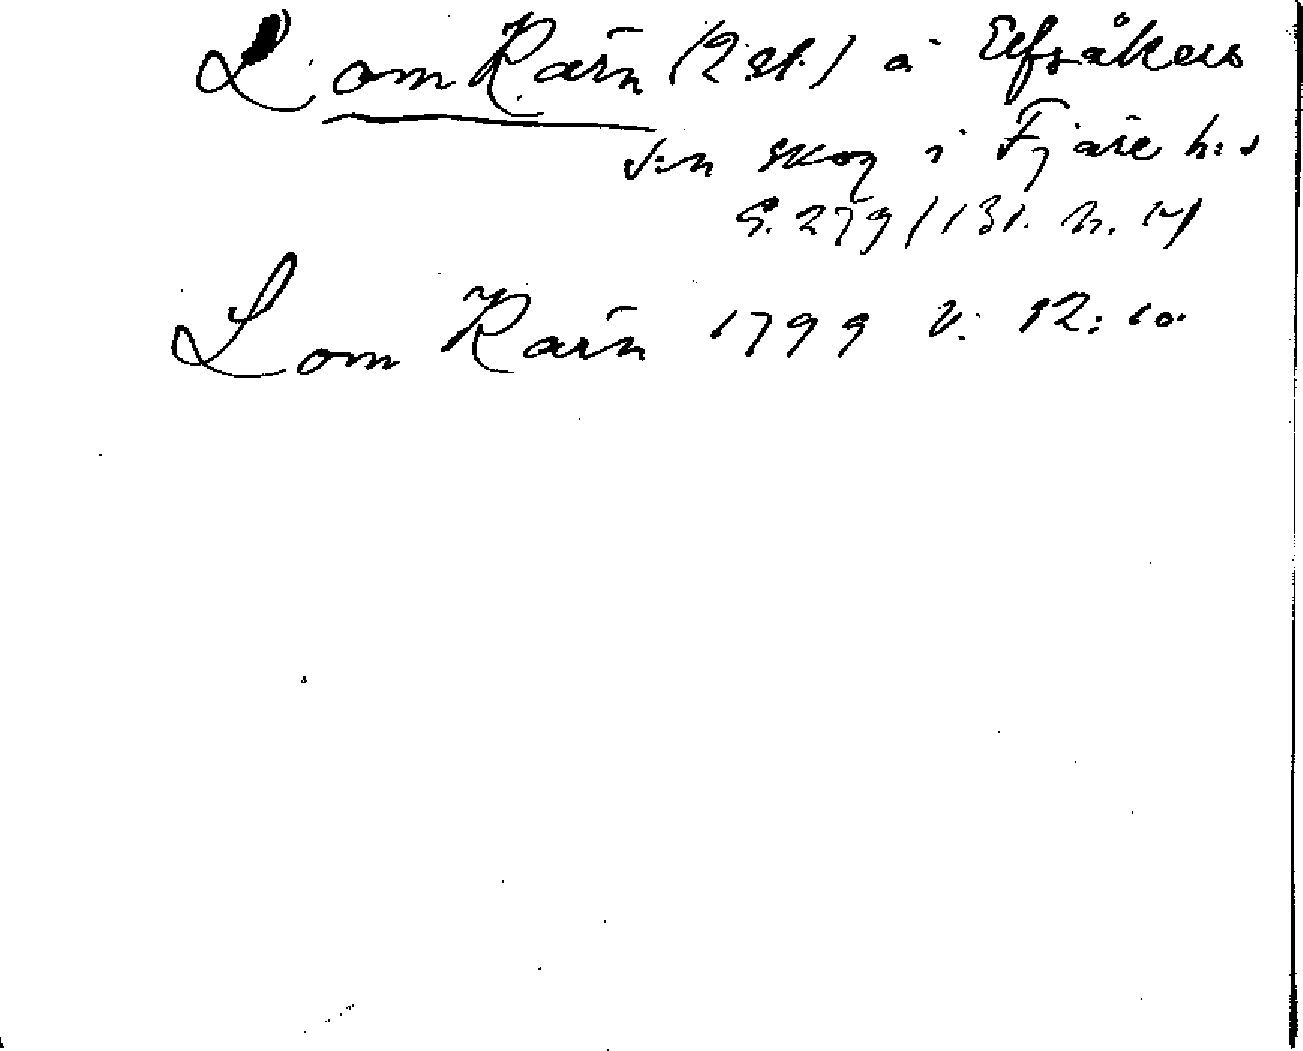 Lom Kärn (2 st.) å Elfsåkers
s:n skog i Fjäre h:d
S. 279 / 131. h. 14
Lom Kärn 1799 v. 12: 10.